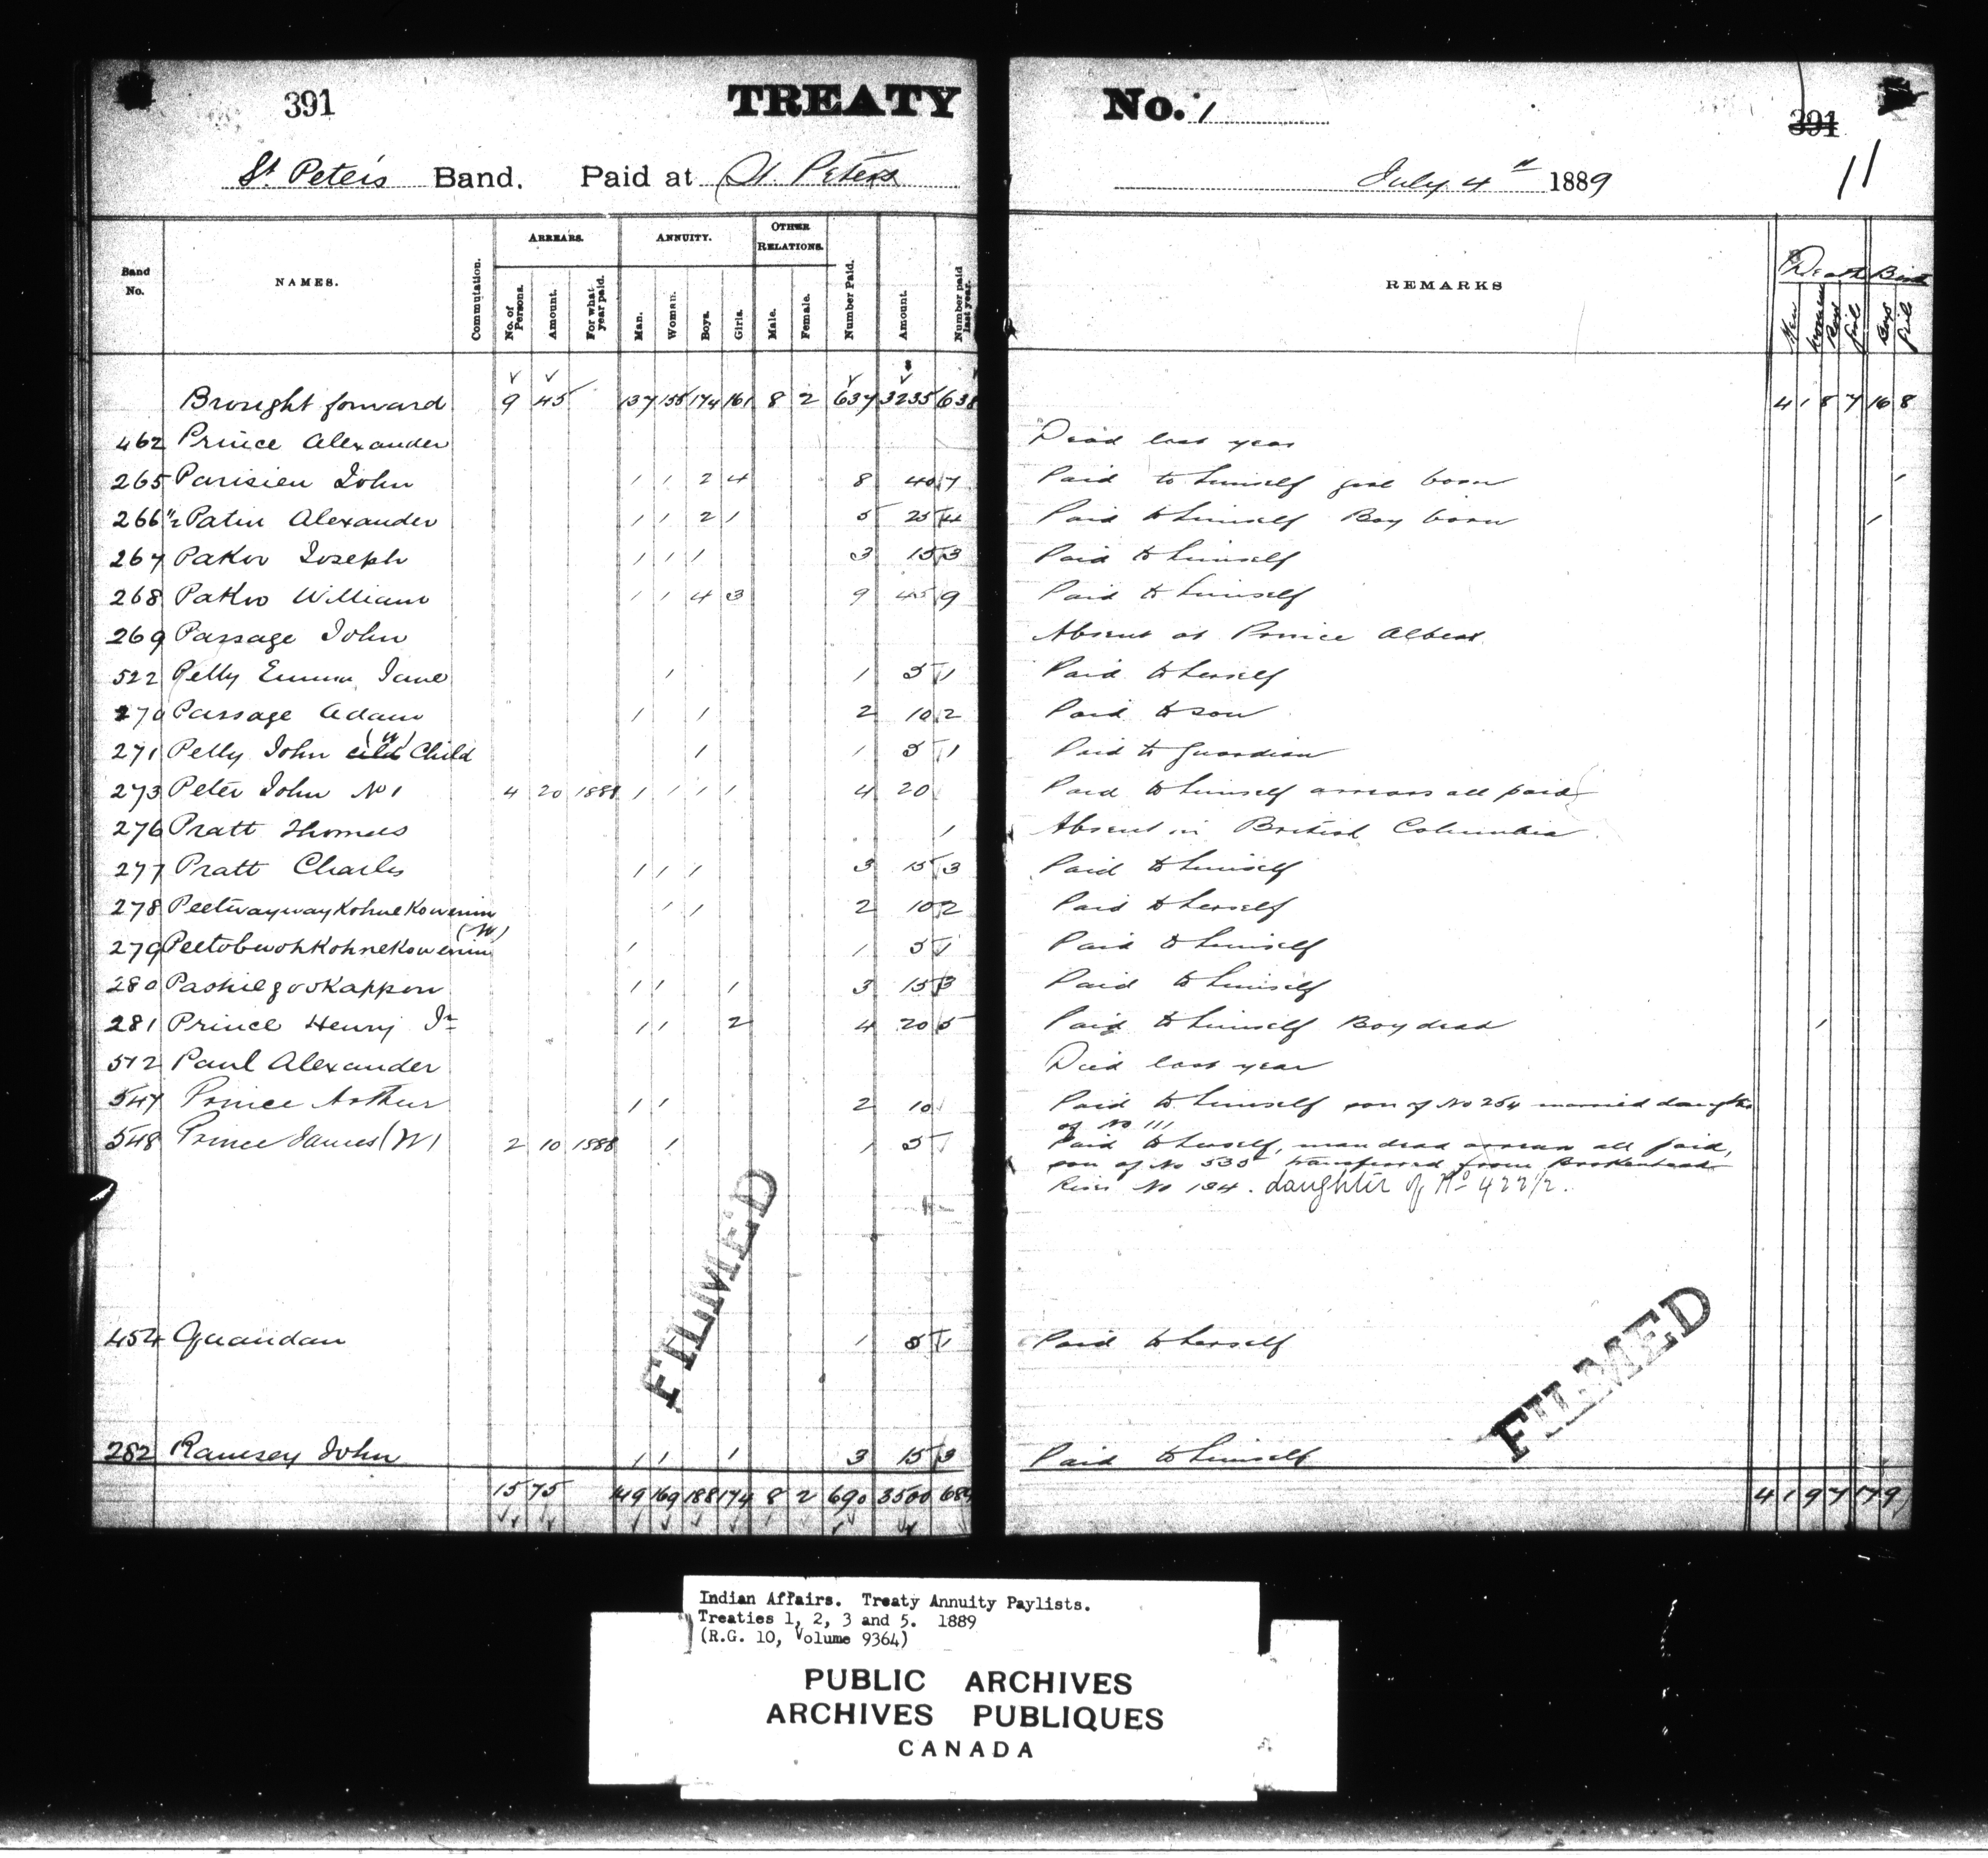 391 TREATY No. 1 391
St. Peter's Band. Paid at St. Peters July 4th 1889 11
Band No. NAMES. Commutation. ARREARS. No. of Persons. Amount. For what year paid. ANNUITY. Man. Woman. Boys. Girls. OTHER RELATIONS. Male. Female. Number Paid. Amount. Number paid last year. REMARKS Death Birth Men Women Boys Girls Boys Girls
Brought forward 9 45 137 155 174 161 8 2 637 3235 638 4 1 8 7 16 8
462 Prince Alexander Dead last year
265 Parisien John 1 1 2 4 8 40 7 Paid to himself girl born 1
266 1/2 Patin Alexander 1 1 2 1 5 25 4 Paid to himself Boy born 1
267 Pakoo Joseph 1 1 1 3 15 3 Paid to himself
268 Pakoo William 1 1 4 3 9 45 9 Paid to himself
269 Passage John Absent at Prince Albert
522 Pelly Emma Jane 1 1 5 1 Paid to herself
270 Passage Adam 1 1 2 10 2 Paid to son
271 Pelly John (W) Child 1 1 5 1 Paid to Guardian
273 Peter John No 1 4 20 1888 1 1 1 1 4 20 Paid to himself arrears all paid
276 Pratt Thomas 1 Absent in British Columbia
277 Pratt Charles 1 1 1 3 15 3 Paid to himself
278 PeetwaywayKohneKowenin (W) 1 1 2 10 2 Paid to herself
279 PeetobwohKohneKowenin 1 1 5 1 Paid to himself
280 Pashiegookappon 1 1 1 3 15 3 Paid to himself
281 Prince Henry Jr 1 1 2 4 20 5 Paid to himself Boy dead 1
512 Paul Alexander Died last year
547 Prince Arthur 1 1 2 10 Paid to himself son of No 254 married daughter
of No 111
548 Prince James (W) 2 10 1888 1 1 5 Paid to herself, man dead arrears all paid,
son of No 535 transferred from Brokenhead
River No 134. daughter of No 422 1/2.
454 Quandan 1 5 1 Paid to herself
282 Ramsey John 1 1 1 3 15 3 Paid to himself
15 75 149 169 188 174 8 2 690 3500 689 4 1 9 7 17 9
FILMED
FILMED
Indian Affairs. Treaty Annuity Paylists.
Treaties 1, 2, 3 and 5. 1889
(R.G. 10, Volume 9364)
PUBLIC ARCHIVES
ARCHIVES PUBLIQUES
CANADA